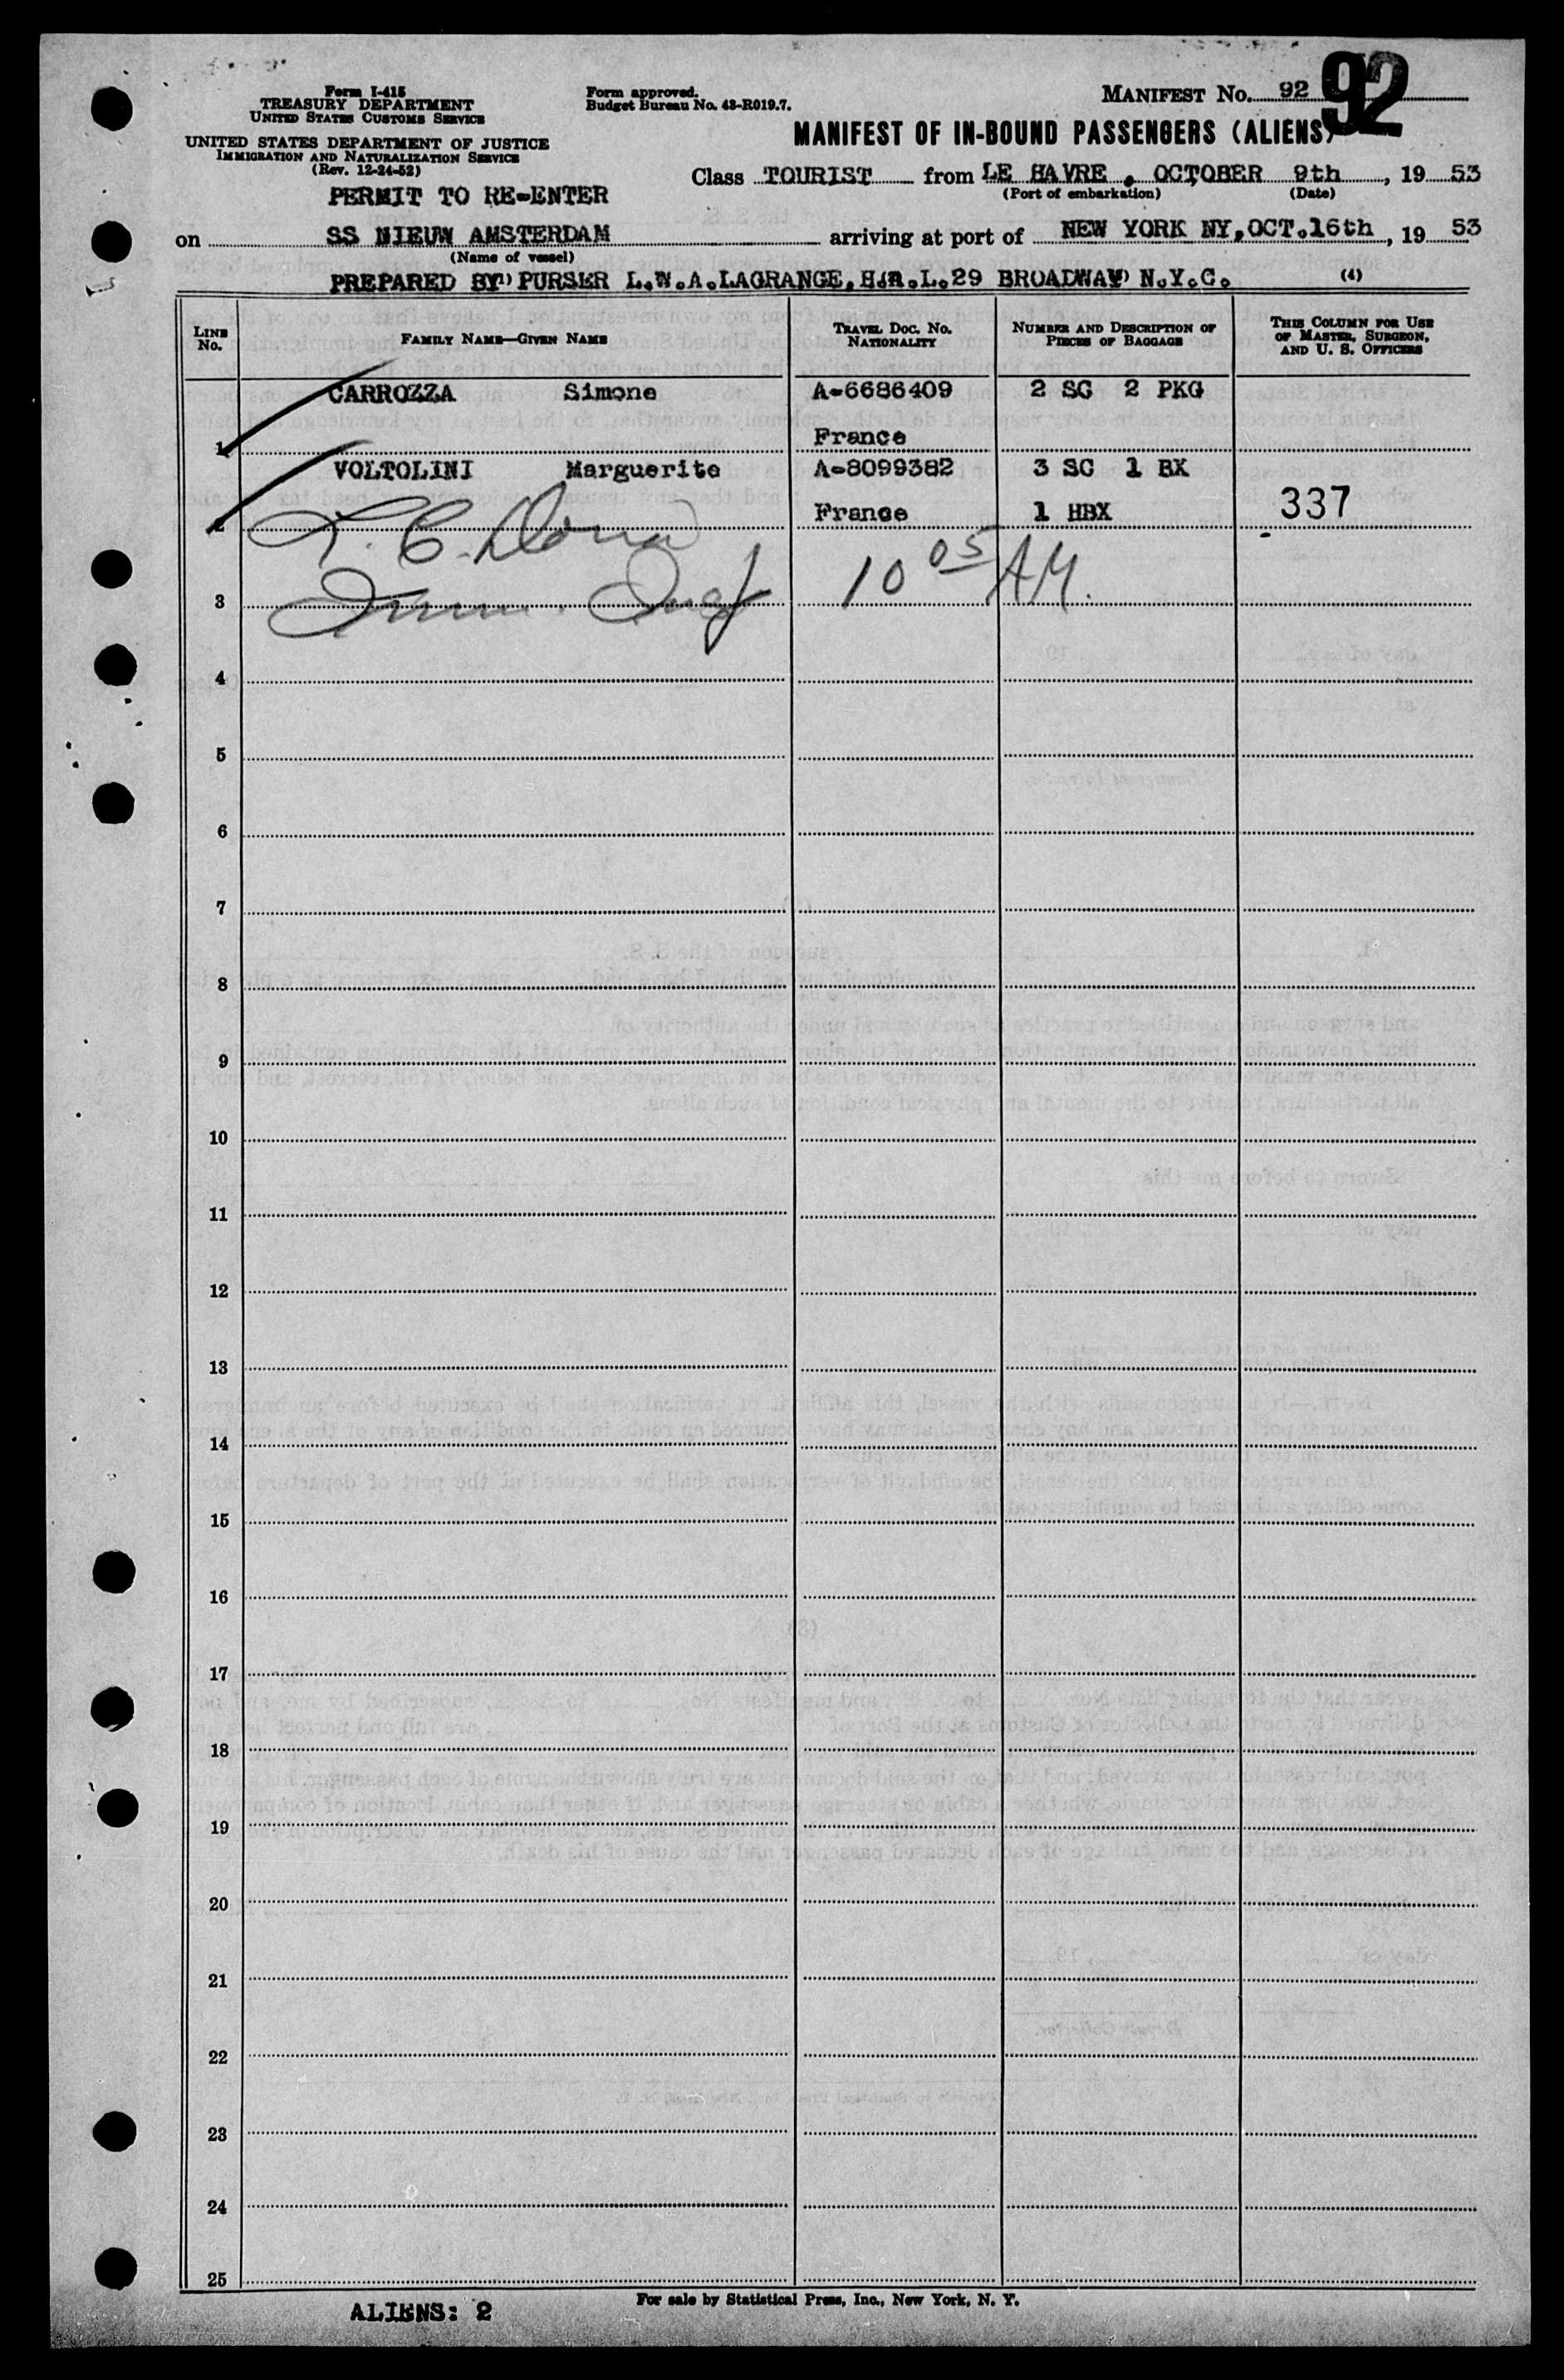 Form I-415
TREASURY DEPARTMENT
UNITED STATES CUSTOMS SERVICE
UNITED STATES DEPARTMENT OF JUSTICE
IMMIGRATION AND NATURALIZATION SERVICE
(Rev. 12-24-52)
Form approved.
Budget Bureau No. 43-R019.7.
MANIFEST NO. 92
92
MANIFEST OF IN-BOUND PASSENGERS (ALIENS)
Class TOURIST from LE HAVRE, OCTOBER 9th, 19 53
(Port of embarkation) (Date)
PERMIT TO RE-ENTER
on SS NIEUW AMSTERDAM arriving at port of NEW YORK NY, OCT.16th, 19 53
(Name of vessel)
PREPARED BY PURSER L.W.A.LAGRANGE, H.A.L.29 BROADWAY N.Y.C. (4)
LINE NO. FAMILY NAME—GIVEN NAME TRAVEL DOC. NO. NATIONALITY NUMBER AND DESCRIPTION OF PIECES OF BAGGAGE THIS COLUMN FOR USE OF MASTER, SURGEON, AND U. S. OFFICERS
CARROZZA Simone A-6686409 2 SC 2 PKG
1 France
VOLTOLINI Marguerite A-8099382 3 SC 1 BX
2 France 1 HBX 337
10 05 AM.
3
4
5
6
7
8
9
10
11
12
13
14
15
16
17
18
19
20
21
22
23
24
25
For sale by Statistical Press, Inc., New York, N. Y.
ALIENS: 2